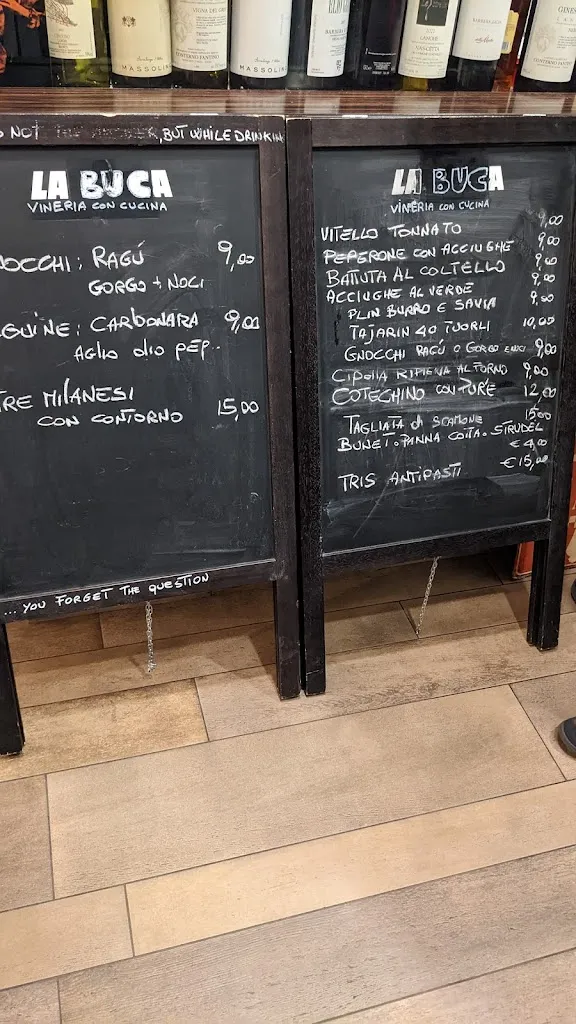 MASSOLINO
MASSOLIN
O NOT THE ANSWER, BUT WHILE DRINKIN
LA BUCA
VINERIA CON CUCINA
OCCHI: RAGÚ 9,00
GORGO + NOCI
GUINE: CARBONARA 9,00
AGLIO OLIO PEP.
TRE MILANESI
CON CONTORNO 15,00
... YOU FORGET THE QUESTION
LA BUCA
VINERIA CON CUCINA
VITELLO TONNATO 9,00
PEPERONE CON ACCIUGHE 9,00
BATTUTA AL COLTELLO 9,00
ACCIUGHE AL VERDE 9,00
PLIN BURRO E SAVIA 9,00
TAJARIN 40 TUORLI 10,00
GNOCCHI RAGÚ O GORGO E NOCI 9,00
CIPOLLA RIPIENA AL FORNO 9,00
COTECHINO CON PURE' 12,00
TAGLIATA di SCAMONE 15,00
BUNET. PANNA COTTA. STRUDEL
€ 4,00
TRIS ANTIPASTI €15,00